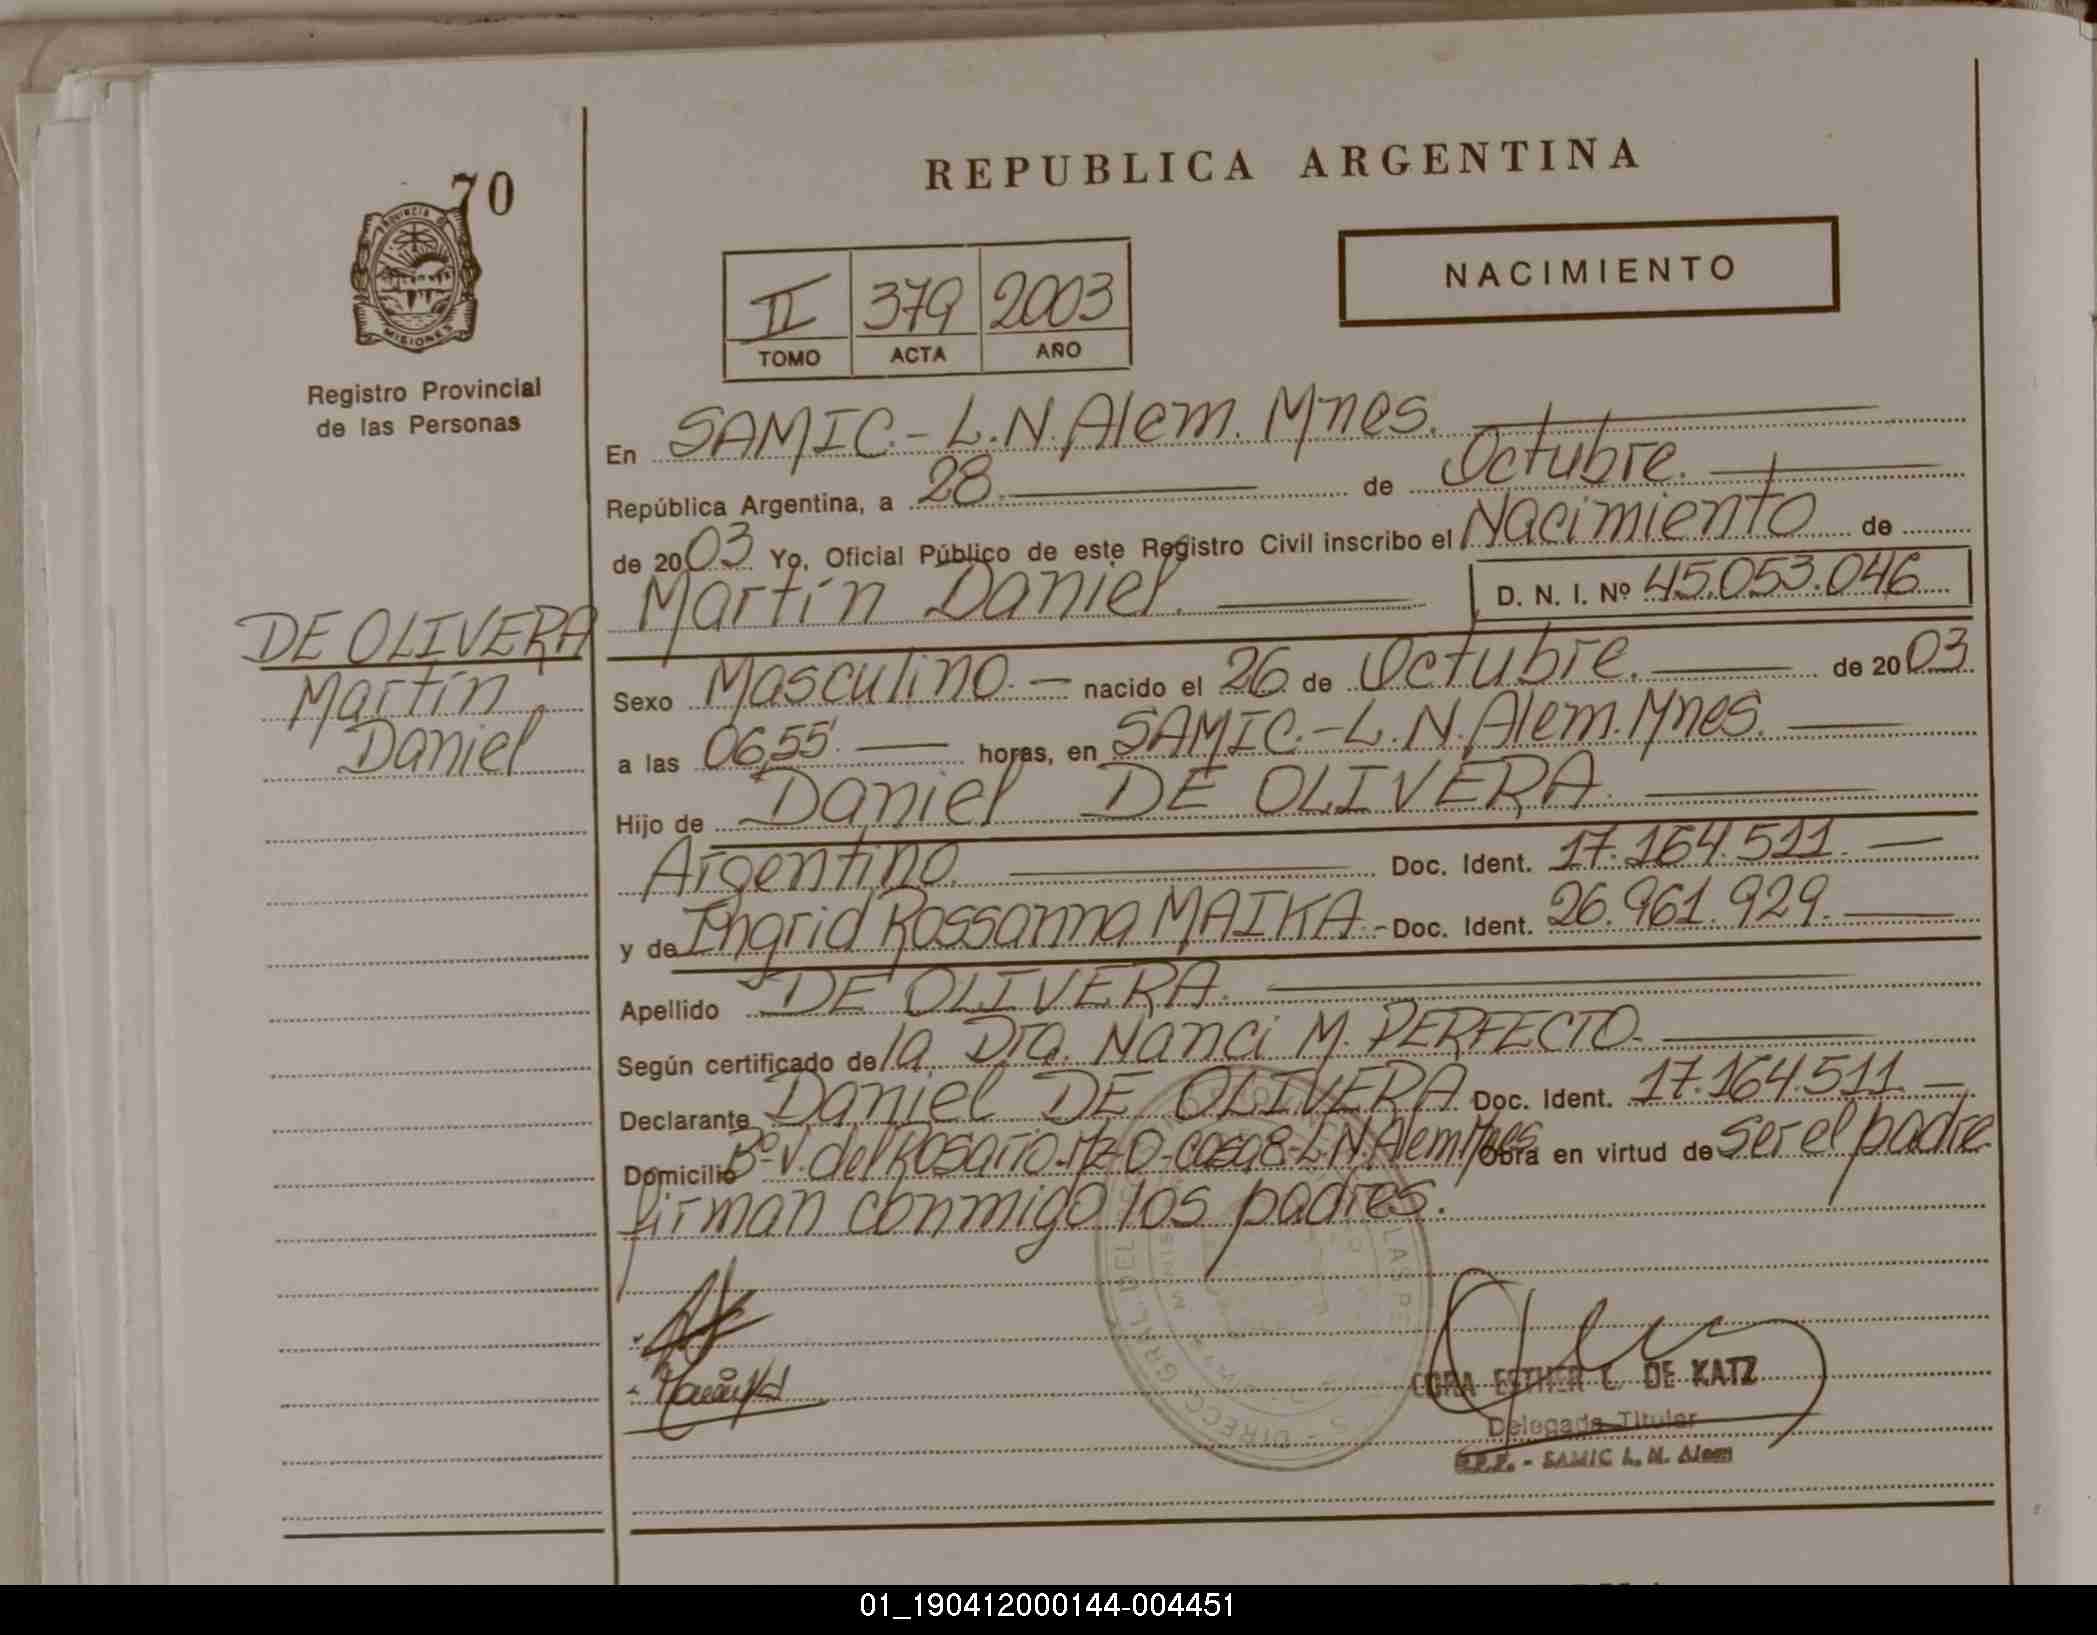 70
PROVINCIA DE
MISIONES
Registro Provincial
de las Personas
DE OLIVERA
Martín
Daniel
REPUBLICA ARGENTINA
NACIMIENTO
II 379 2003
TOMO ACTA AÑO
En SAMIC.- L.N.Alem. Mnes.
República Argentina, a 28. de Octubre.
de 2003 Yo, Oficial Público de este Registro Civil inscribo el Nacimiento de
Martín Daniel. D. N. I. Nº 45.053.046
Sexo Masculino. nacido el 26 de Octubre. de 2003
a las 06,55 horas, en SAMIC.-L.N.Alem.Mnes.
Hijo de Daniel DE OLIVERA.
Argentino. Doc. Ident. 17.164.511.
y de Ingrid Rossanna MAIKA.- Doc. Ident. 26.961.929.
Apellido DE OLIVERA.
Según certificado de la Dra. Nanci M. PERFECTO.
Declarante Daniel DE OLIVERA Doc. Ident. 17.164.511
Domicilio Bº-V. del Rosario-Mz-D-casa8-L.N.Alem.Mnes Obra en virtud de ser el padre
firman conmigo los padres.
CORA ESTHER C. DE KATZ
Delegada Titular
R.P.P. - SAMIC L. N. Alem
01_190412000144-004451